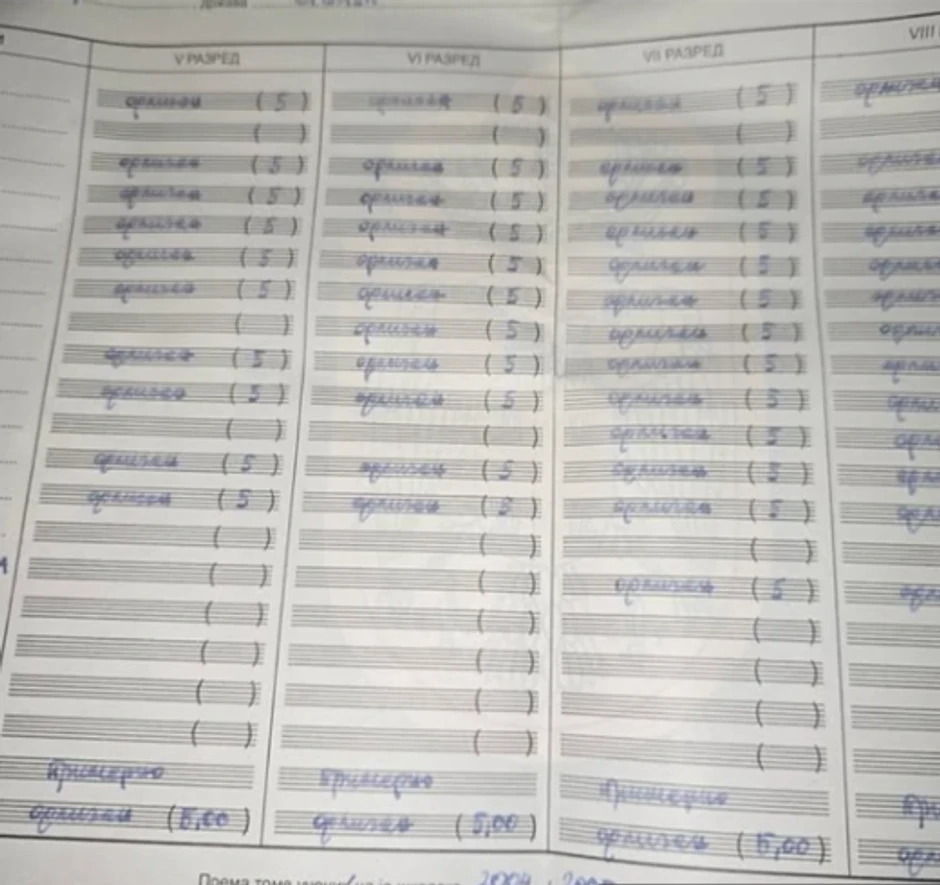 држава
V РАЗРЕД VI РАЗРЕД VII РАЗРЕД VIII
одличан (5) одличан (5) одличан (5) одличан
( ) ( ) ( )
одличан (5) одличан (5) одличан (5) одличан
одличан (5) одличан (5) одличан (5) одличан
одличан (5) одличан (5) одличан (5) одличан
одличан (5) одличан (5) одличан (5) одличан
одличан (5) одличан (5) одличан (5) одличан
( ) одличан (5) одличан (5) одличан
одличан (5) одличан (5) одличан (5) одличан
одличан (5) одличан (5) одличан (5) одли
( ) ( ) одличан (5) одл
одличан (5) одличан (5) одличан (5) одл
одличан (5) одличан (5) одличан (5) одл
( ) ( ) ( )
( ) ( ) одличан (5) одл
( ) ( ) ( )
( ) ( ) ( )
( ) ( ) ( )
( ) ( ) ( )
Примерно Примерно Примерно При
одличан (5,00) одличан (5,00) одличан (5,00) одл
Према томе